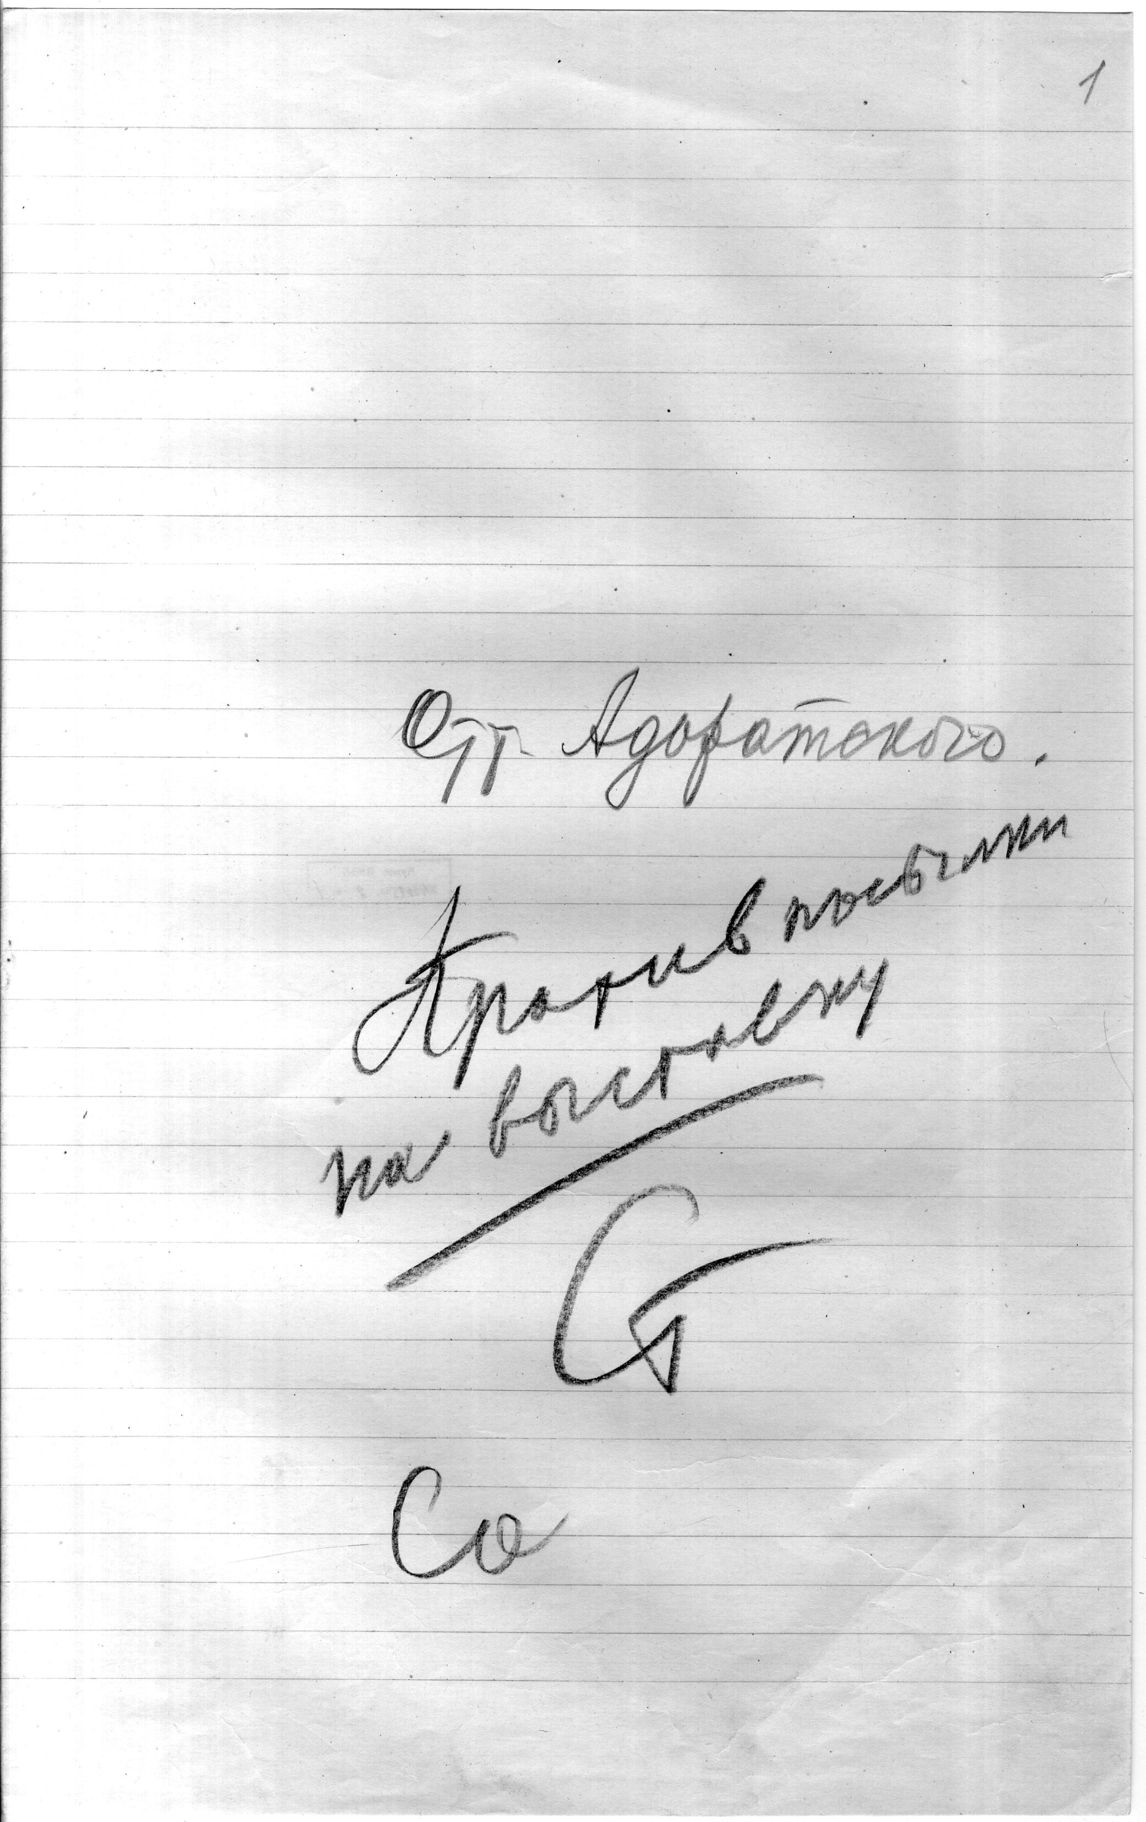 1
От т. Адоратского.
Против посылки
на выставку
Ст
Со